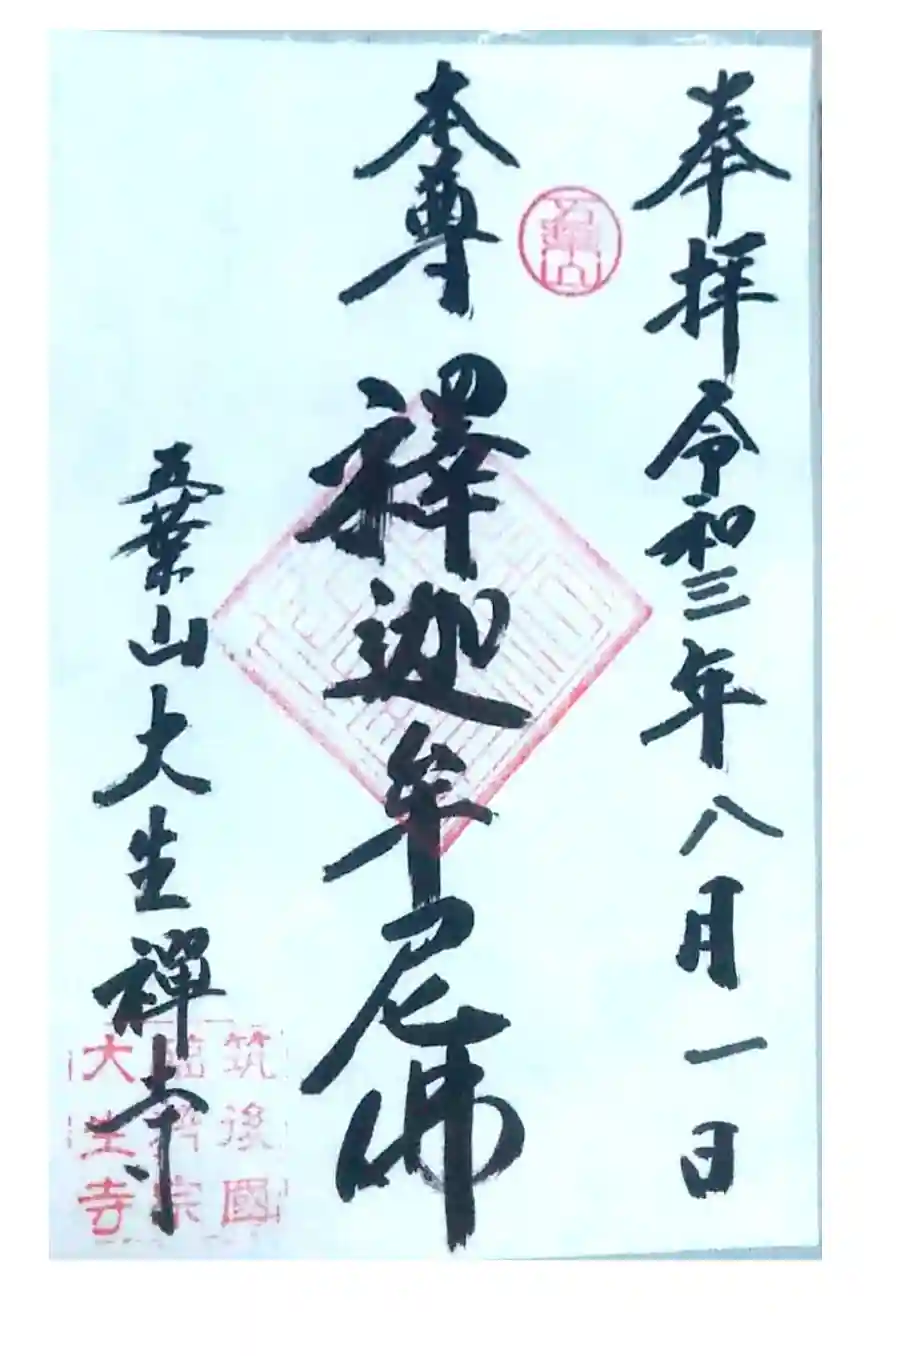 奉拝令和三年八月一日
五葉山
本尊
釋迦牟尼佛
五葉山大生禪寺
筑後國
臨済宗
大生寺